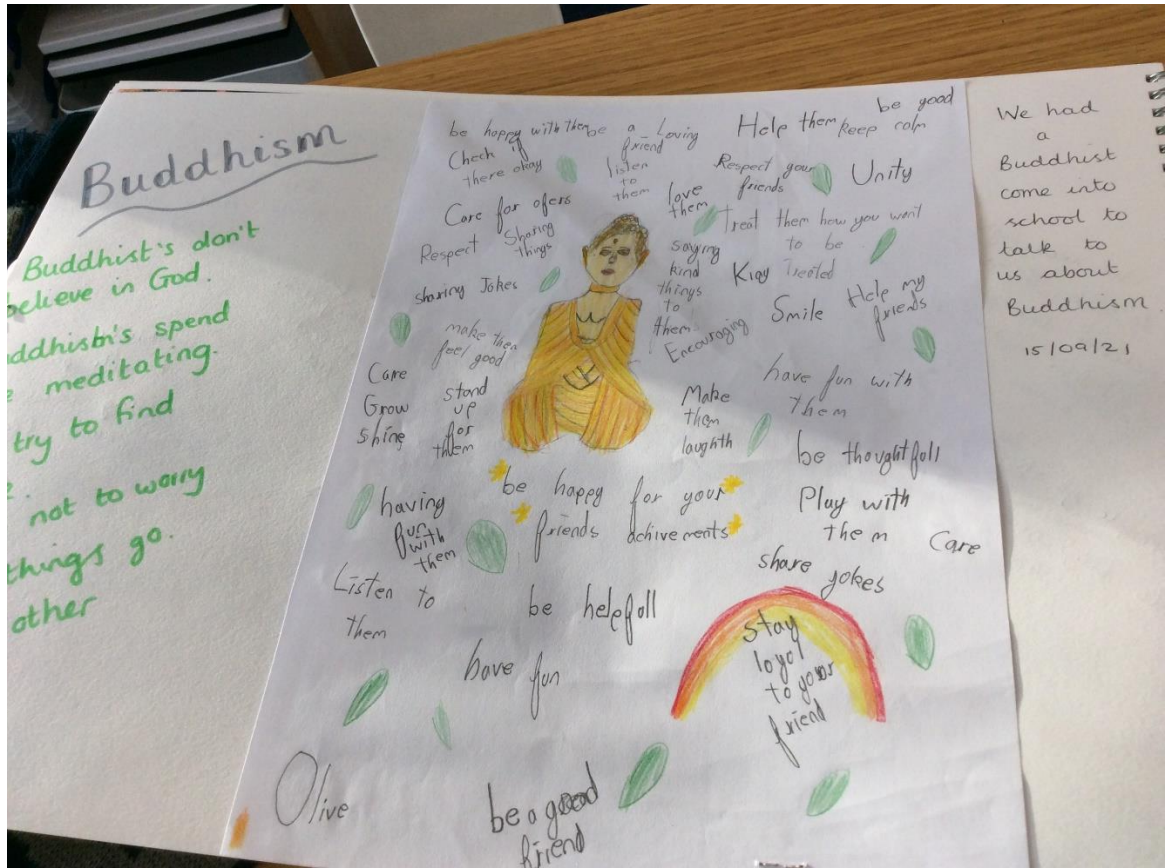 Buddhism
Buddhist's don't
believe in God.
spend
meditating.
try to find
not to worry
things go.
other
be happy with them
be a loving
friend
Help them
be good
keep calm
Check if
there okay
listen
to
them
Respect your
friends
Unity
love
them
Care for ofers
Treat them how you want
to be
Treated
Respect
Sharing
things
saying
kind
things
to
them
Kiay
sharing Jokes
Encouraging
Smile
Help my
friends
make them
feel good
Care
Grow
shine
stand
up
for
them
have fun with
them
Make
them
laughth
be thoughtfull
be happy for your
friends achivements
having
fun
with
them
Play with
them
Care
share jokes
Listen to
them
be helpfull
have fun
stay
loyal
to your
friend
Olive
be a good
friend
We had
a
Buddhist
come into
school to
talk to
us about
Buddhism
15/09/21